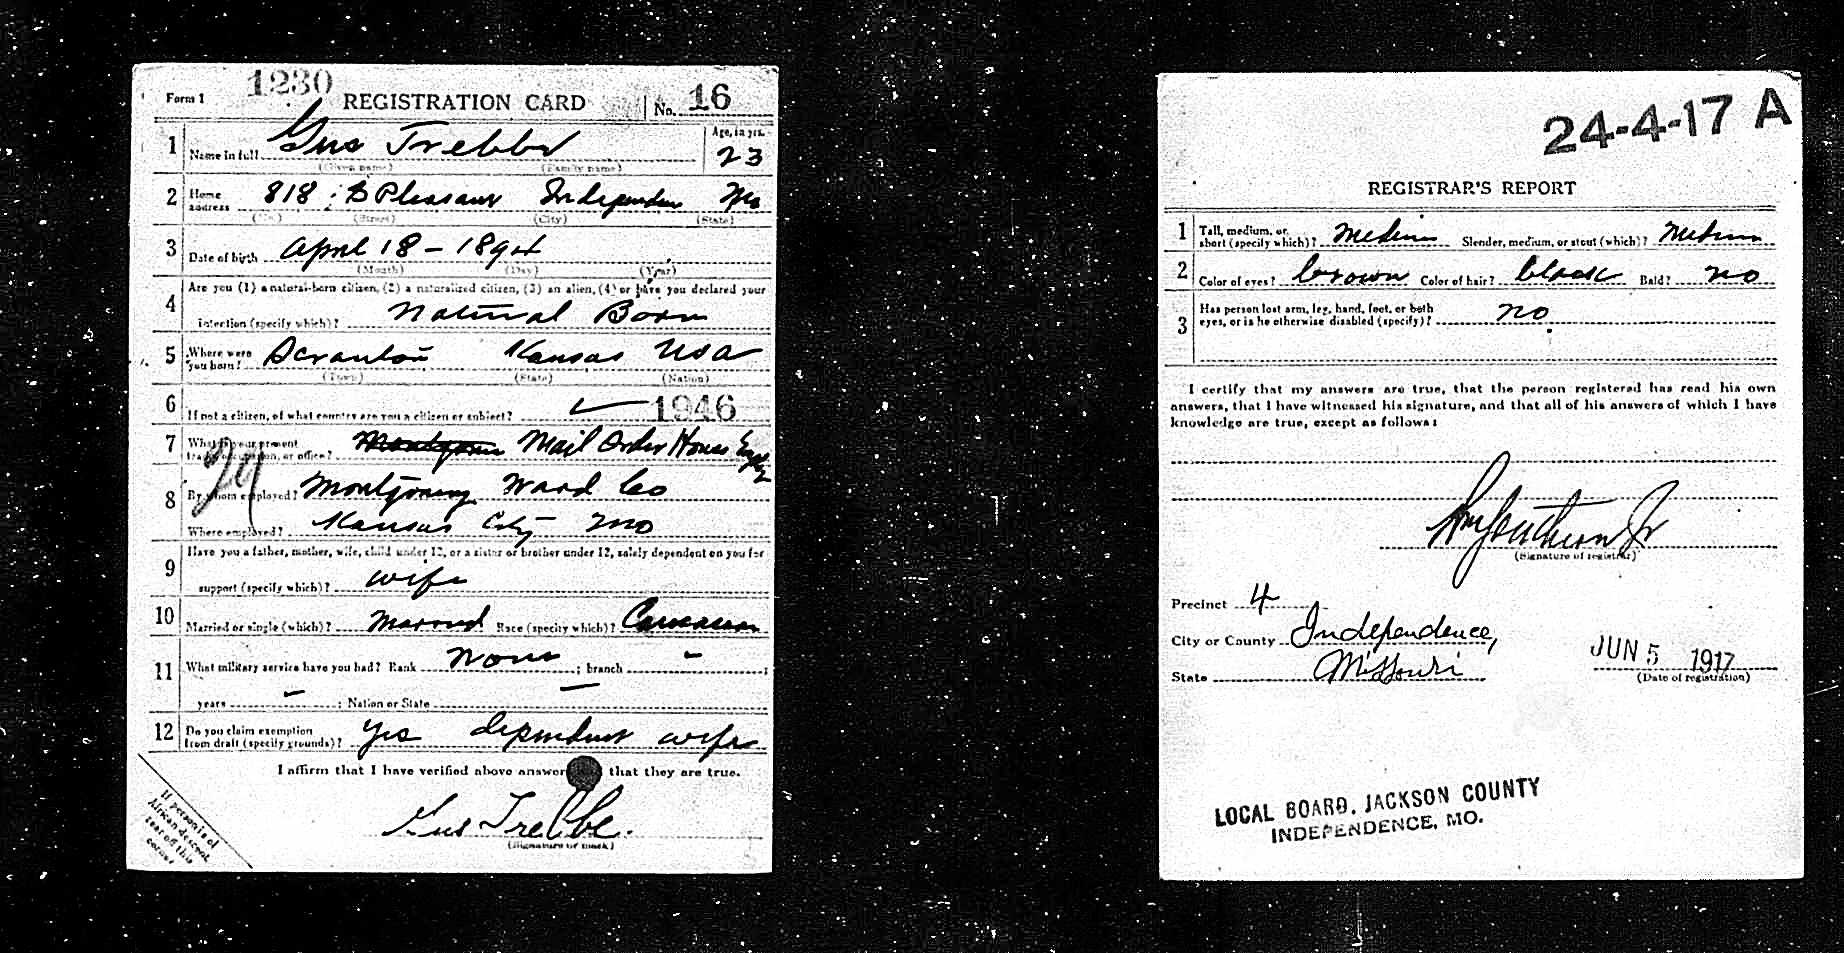 1230
Form 1 REGISTRATION CARD No. 16
1 Name in full Gus Trebbe Age, in yrs. 23
(Given name) (Family name)
2 Home address 818 : S Pleasant Independen Mo
(No.) (Street) (City) (State)
3 Date of birth April 18 - 1894
(Month) (Day) (Year)
4 Are you (1) a natural-born citizen, (2) a naturalized citizen, (3) an alien, (4) or have you declared your
intention (specify which)? Natural Born
5 Where were you born? Scranton Kansas USA
(Town) (State) (Nation)
6 If not a citizen, of what country are you a citizen or subject? 1946
7 What is your present trade, occupation, or office? Mail Order House
29
8 By whom employed? Montgomery Ward Co
Where employed? Kansas City Mo
9 Have you a father, mother, wife, child under 12, or a sister or brother under 12, solely dependent on you for
support (specify which)? wife
10 Married or single (which)? Married Race (specify which)? Caucasian
11 What military service have you had? Rank None ; branch - ;
years - ; Nation or State —
12 Do you claim exemption from draft (specify grounds)? Yes dependent wife
I affirm that I have verified above answers that they are true.
Gus Trebbe.
(Signature or mark)
If person is of
African descent
tear off this
corner
24-4-17 A
REGISTRAR'S REPORT
1 Tall, medium, or short (specify which)? Medium Slender, medium, or stout (which)? Medium
2 Color of eyes? brown Color of hair? black Bald? no
3 Has person lost arm, leg, hand, foot, or both eyes, or is he otherwise disabled (specify)? no
I certify that my answers are true, that the person registered has read his own
answers, that I have witnessed his signature, and that all of his answers of which I have
knowledge are true, except as follows:
(Signature of registrar)
Precinct 4
City or County Independence,
State Missouri
JUN 5 1917
(Date of registration)
LOCAL BOARD, JACKSON COUNTY
INDEPENDENCE, MO.